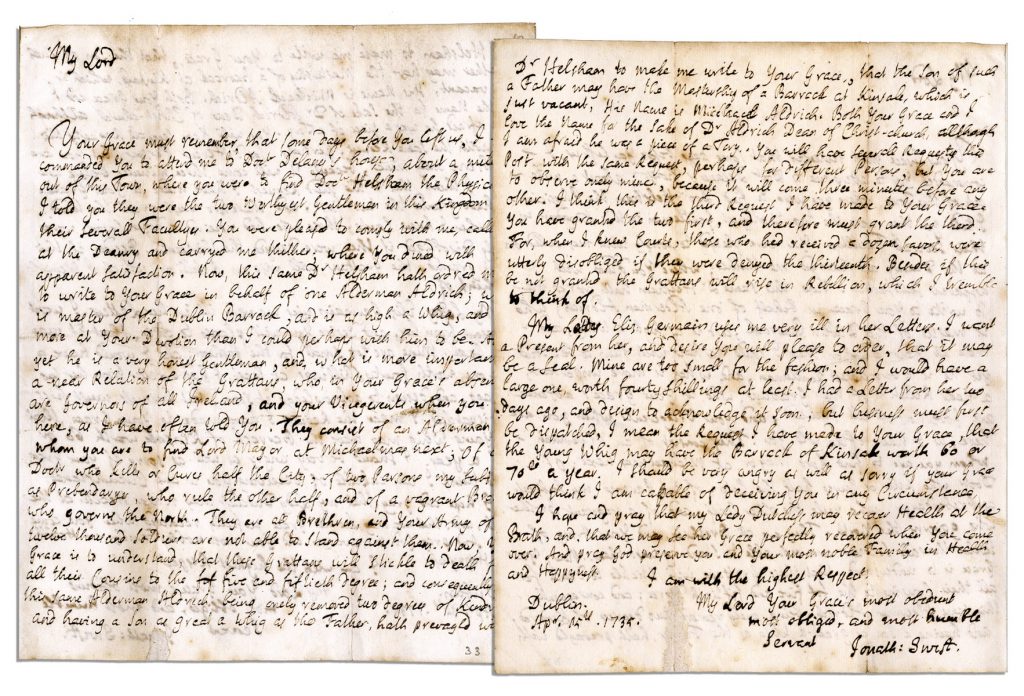 My Lord
Your Grace must remember, that some days before You left us, I
commanded You to attend me to Doctr Delany's house, about a mile
out of this Town, where you were to find Doctr Helsham the Physic
I told you they were the two worthyest Gentlemen in this Kingdom
their Severall Facultyes. You were pleased to comply with me, call
at the Deanry and carryed me thither; where You dined with
apparent Satisfaction. Now, this same Dr Helsham hath ordred m
to write to Your Grace in behalf of one Alderman Aldrich; w
is master of the Dublin Barrack, and is as high a Whig, and
more at Your Devotion than I could perhaps wish him to be.
yet he is a very honest Gentleman, and, what is more important
a near Relation of the Grattans, who in Your Grace's absen
are Governors of all Ireland, and your Vicegerents when you
here, as I have often told You. They consist of an Alderman
whom you are to find Lord Mayor at Michaelmas next; Of a
Doctr who kills or cures half the City, of two Parsons my
as Prebendaryes, who rule the other half, and of a vagrant Br
who governs the North. They are all Brethren, and Your Army of
twelve thousand Soldiers are not able to stand against them. Now,
Grace is to understand, that these Grattans will stickle to death
all their Cousins to the five and fiftieth degree; and consequently
this same Alderman Aldrich being onely removed two degrees of Kindr
and having a Son as great a Whig as the Father, hath prevayled w
33
Dr Helsham to make me write to Your Grace, that the Son of such
a Father may have the Mastership of a Barrack at Kinsale, which is
just vacant, His Name is Michael Aldrich. Both Your Grace and I
love the Name for the sake of Dr Aldrich Dean of Christ-church, although
I am afraid he was a piece of a Tory. You will have severall Requests this
Post with the same Request, perhaps for different Persons, but You are
to observe onely mine, because it will come three minutes before any
other. I think this is the third Request I have made to Your Grace
You have granted the two first, and therefore must grant the third.
For, when I knew Courts, those who had received a dozen favors, were
utterly disobliged if they were denyed the thirteenth. Besides, if this
be not granted the Grattans will rise in Rebellion, which I tremble
to think of.
My Lady Eliz. Germain uses me very ill in her Letters. I want
a Present from her, and desire You will please to order, that it may
be a Seal. Mine are too small for the fashion; and I would have a
large one, worth fourty shillings at least. I had a Letter from her two
days ago, and design to acknowledge it soon, but business must first
be dispatched, I mean the Request I have made to Your Grace, that
the Young Whig may have the Barrack of Kinsale worth 60 or
70ll a year. I should be very angry as well as sorry if your Grace
would think I am capable of deceiving You in any Circumstance.
I hope and pray that my Lady Dutchess may recover Health at the
Bath, and, that we may see her Grace perfectly recovered when You come
over. And pray God preserve you, and Your most noble Family in Health
and Happyness.
I am with the highest Respect
My Lord Your Grace's most obedient
most obliged, and most humble
Servant
Dublin.
Apr. 1735.
Jonath: Swift.